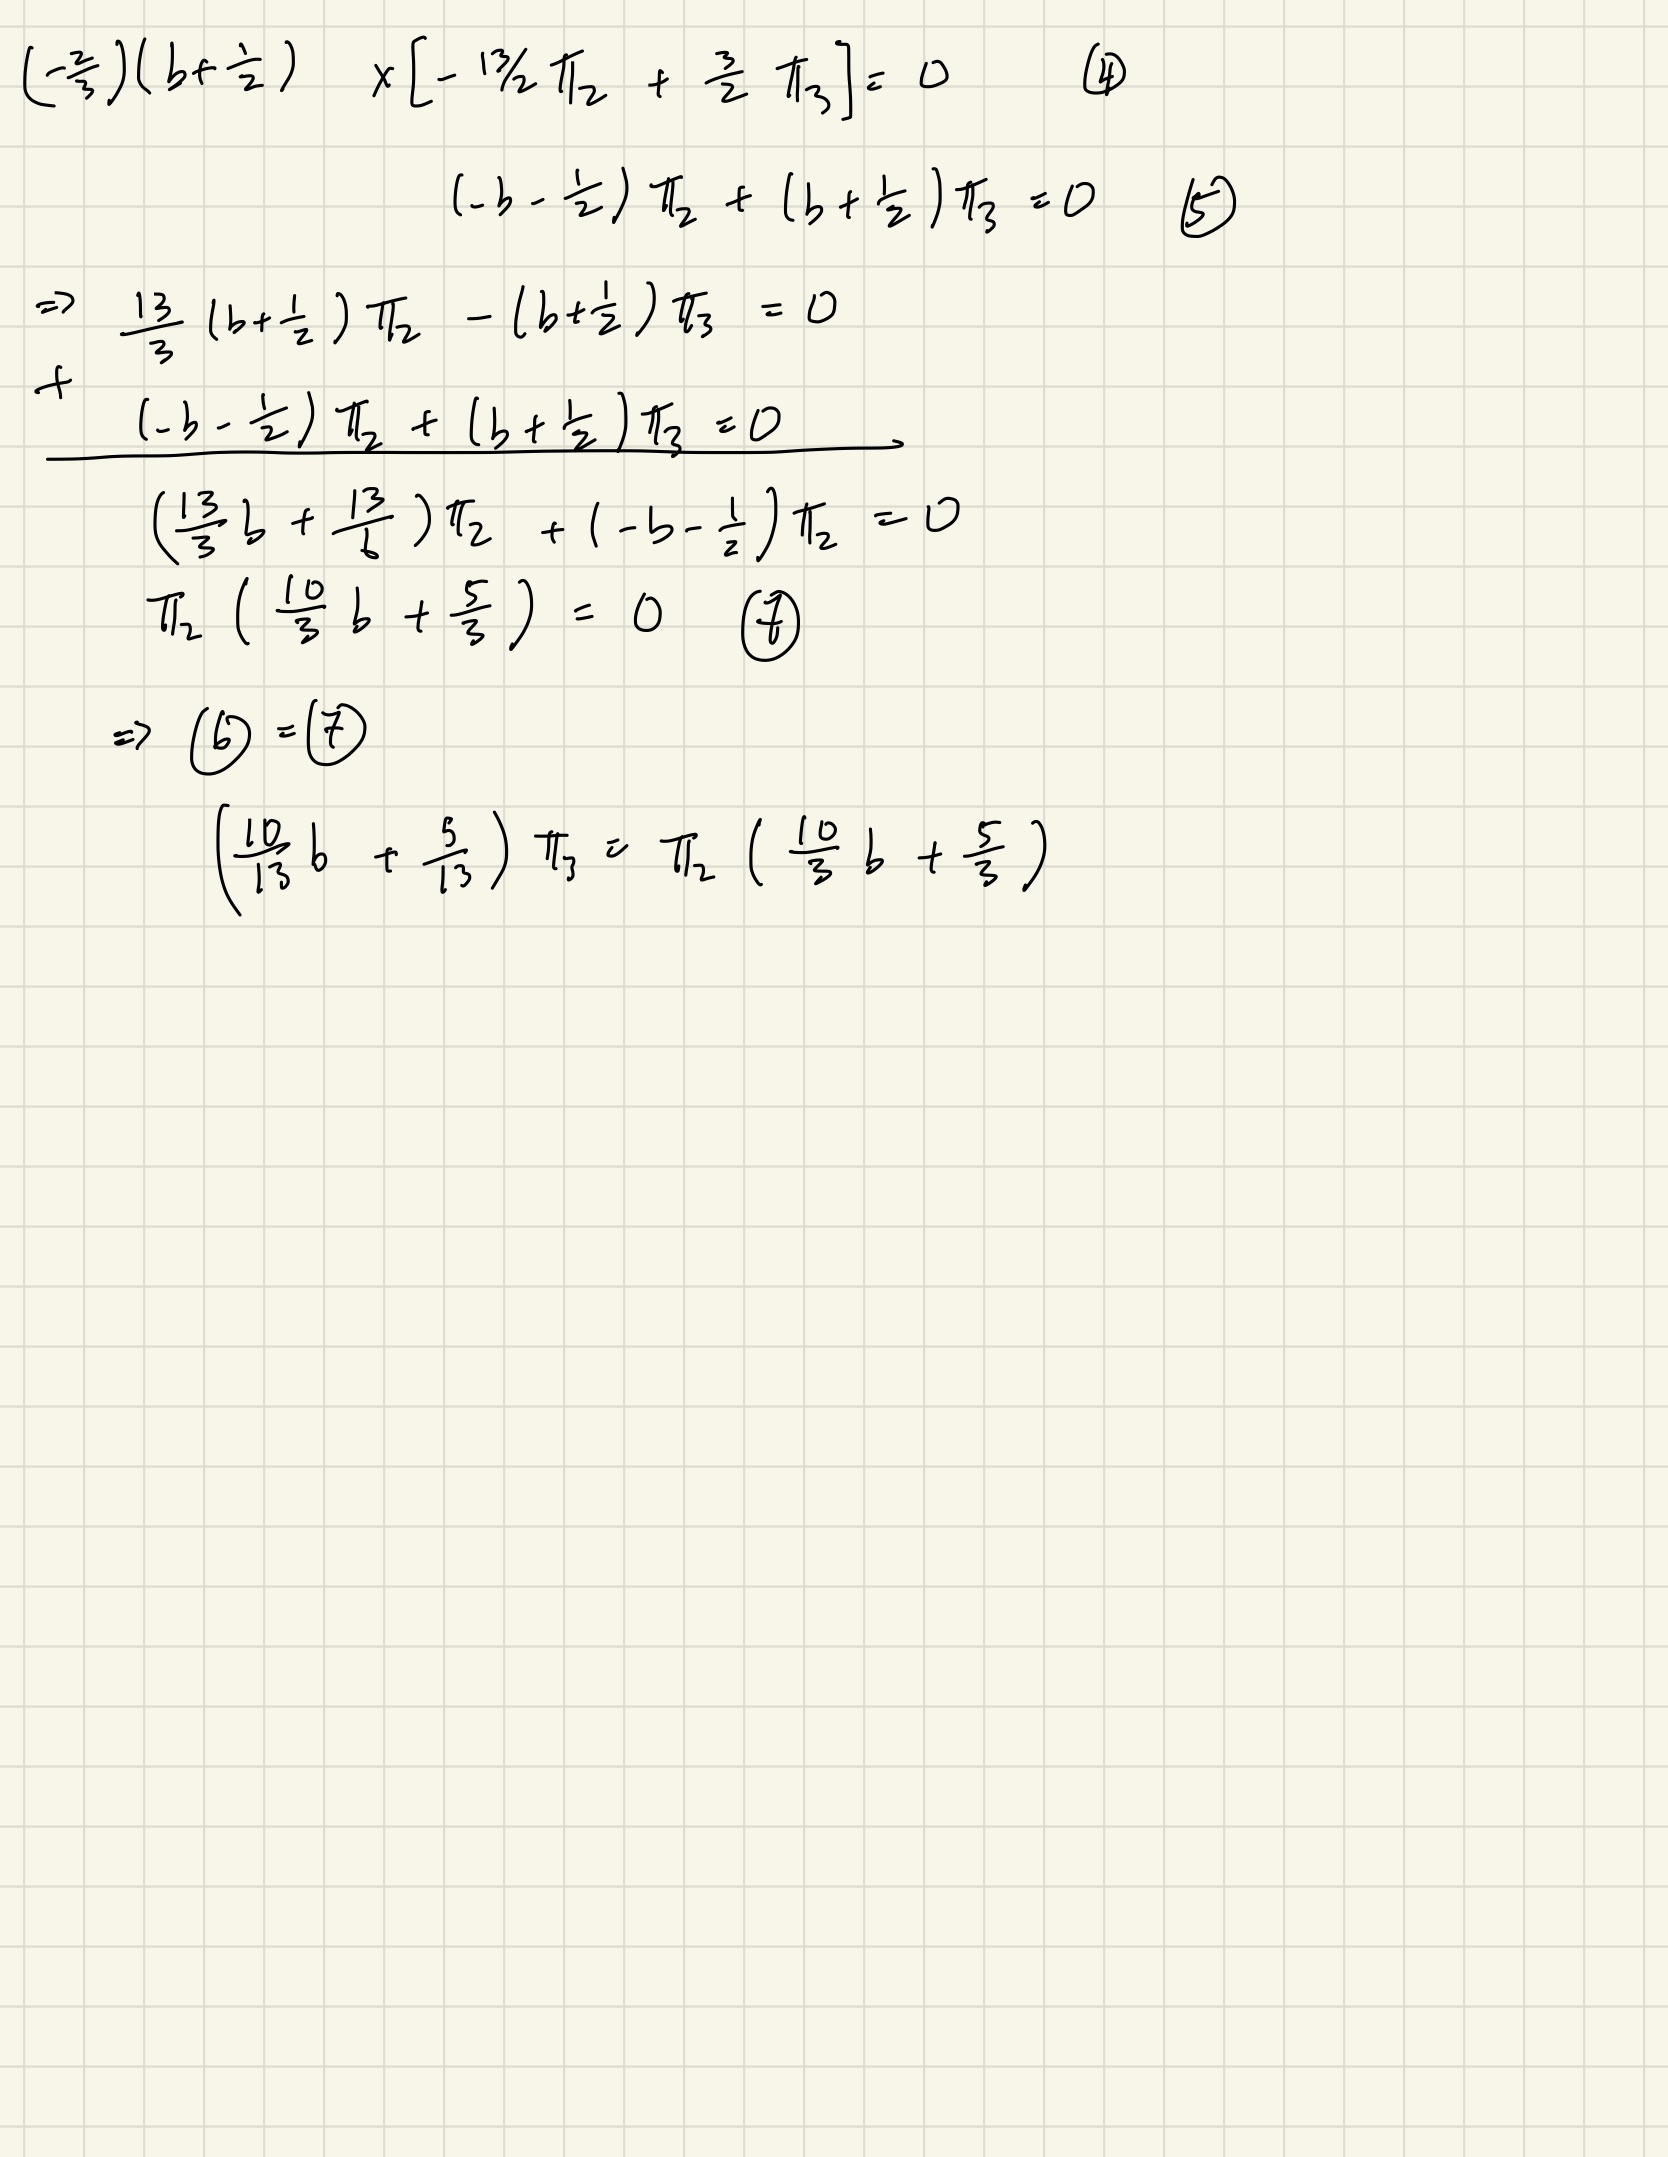 (-2/3)(b+1/2) ×[-13/2 π₂ + 3/2 π₃] = 0 ④
(-b-1/2)π₂ + (b+1/2)π₃ = 0 ⑤
⇒ 13/3 (b+1/2)π₂ - (b+1/2)π₃ = 0
+
(-b-1/2)π₂ + (b+1/2)π₃ = 0
(13/3 b + 13/6)π₂ + (-b-1/2)π₂ = 0
π₂(10/3 b + 5/3) = 0 ⑦
⇒ ⑥ = ⑦
(10/13 b + 5/13)π₃ = π₂(10/3 b + 5/3)